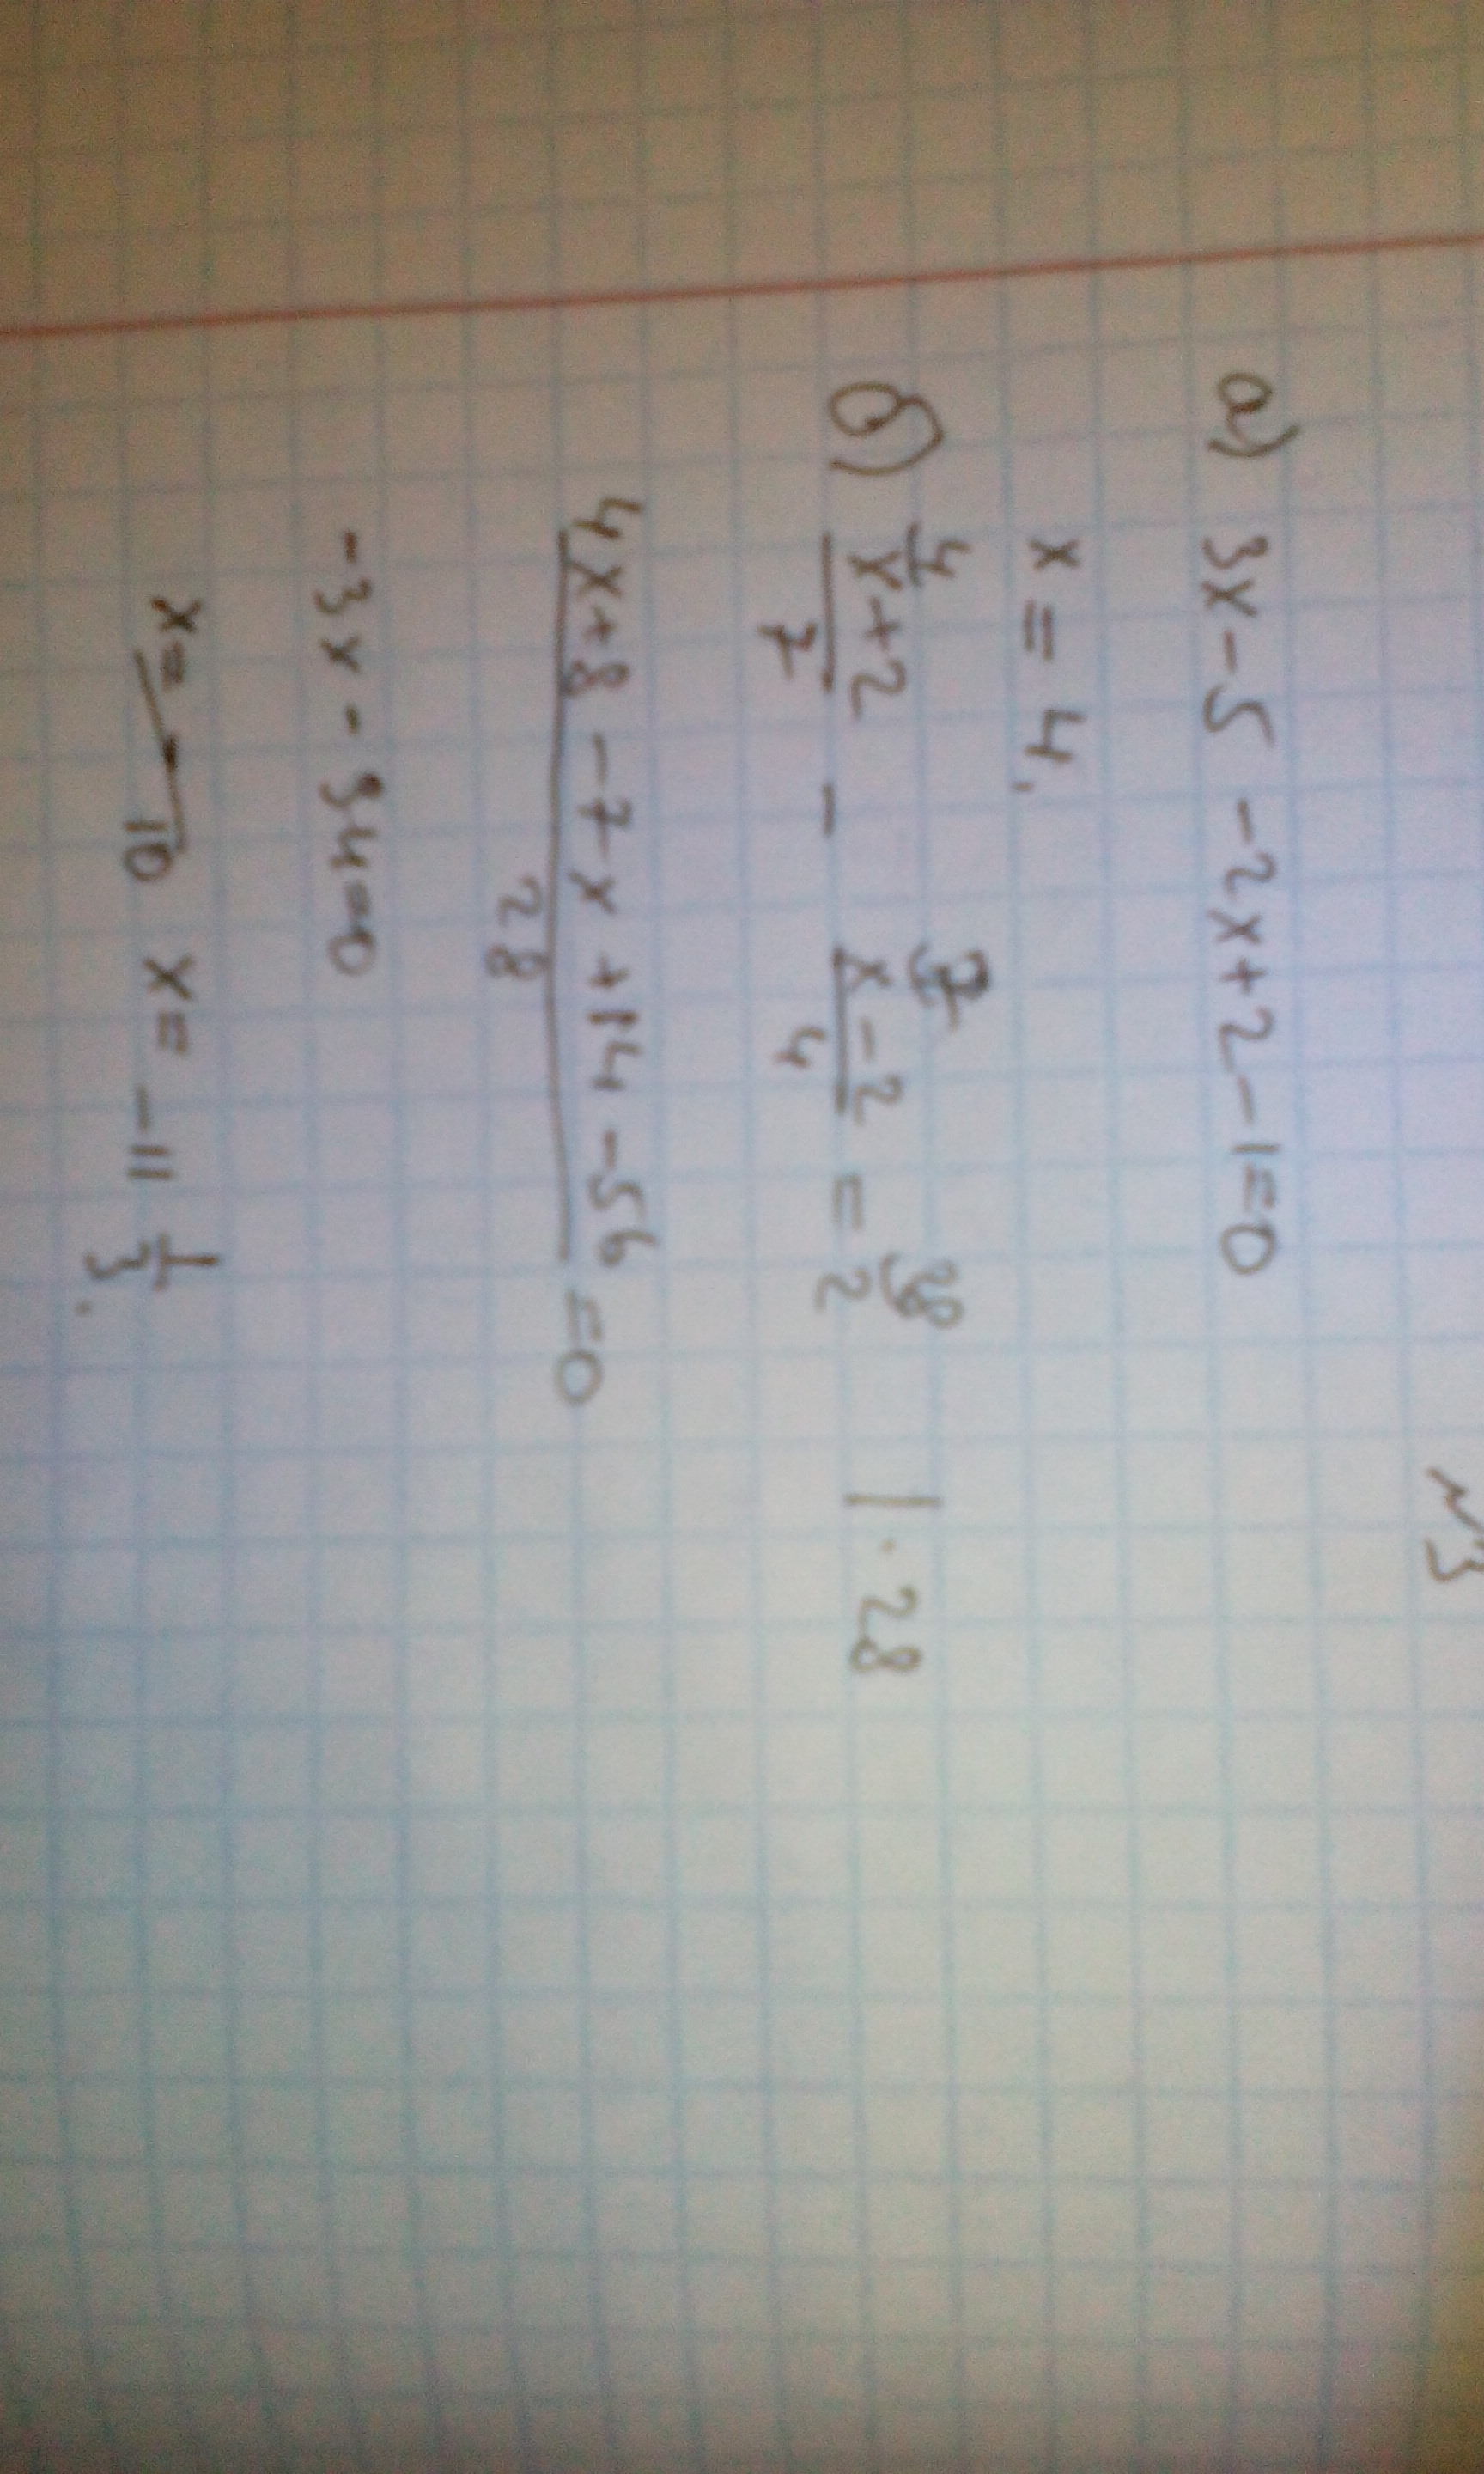 №3
а) 3x-5 -2x+2-1=0
x = 4.
б) 4/ (x+2)/7 - 7/ (x-2)/4 = 28/ 2 | · 28
(4x+8-7x+14-56)/28 =0
-3x-34=0
x = -11 1/3.